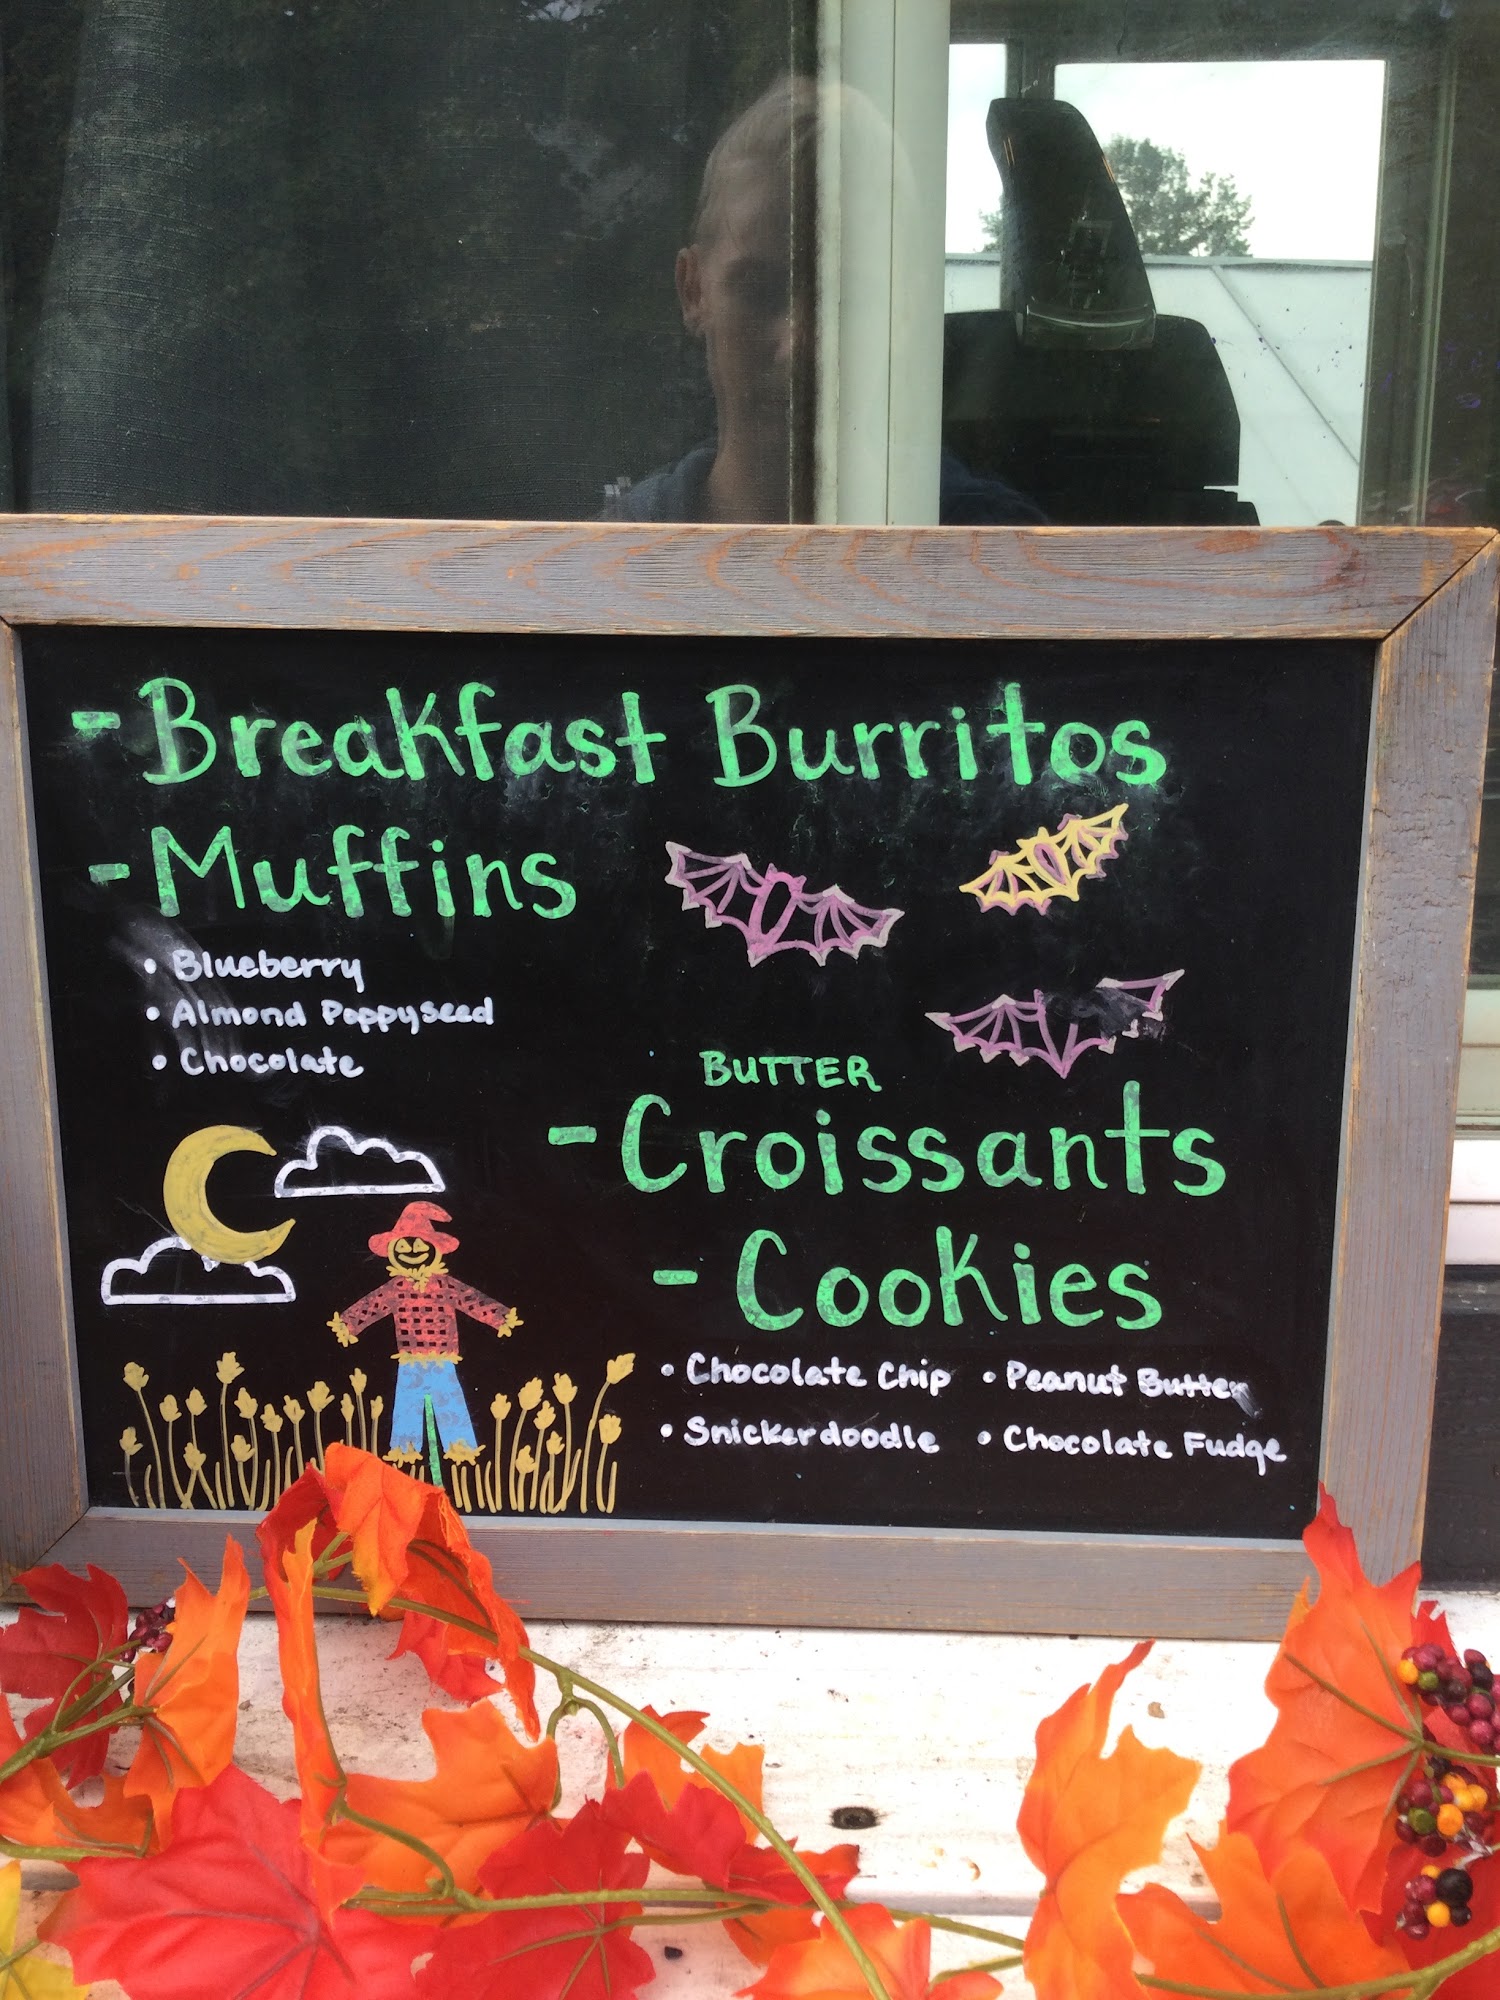 - Breakfast Burritos
- Muffins
• Blueberry
• Almond Poppyseed
• Chocolate
BUTTER
- Croissants
- Cookies
• Chocolate Chip • Peanut Butter
• Snickerdoodle • Chocolate Fudge